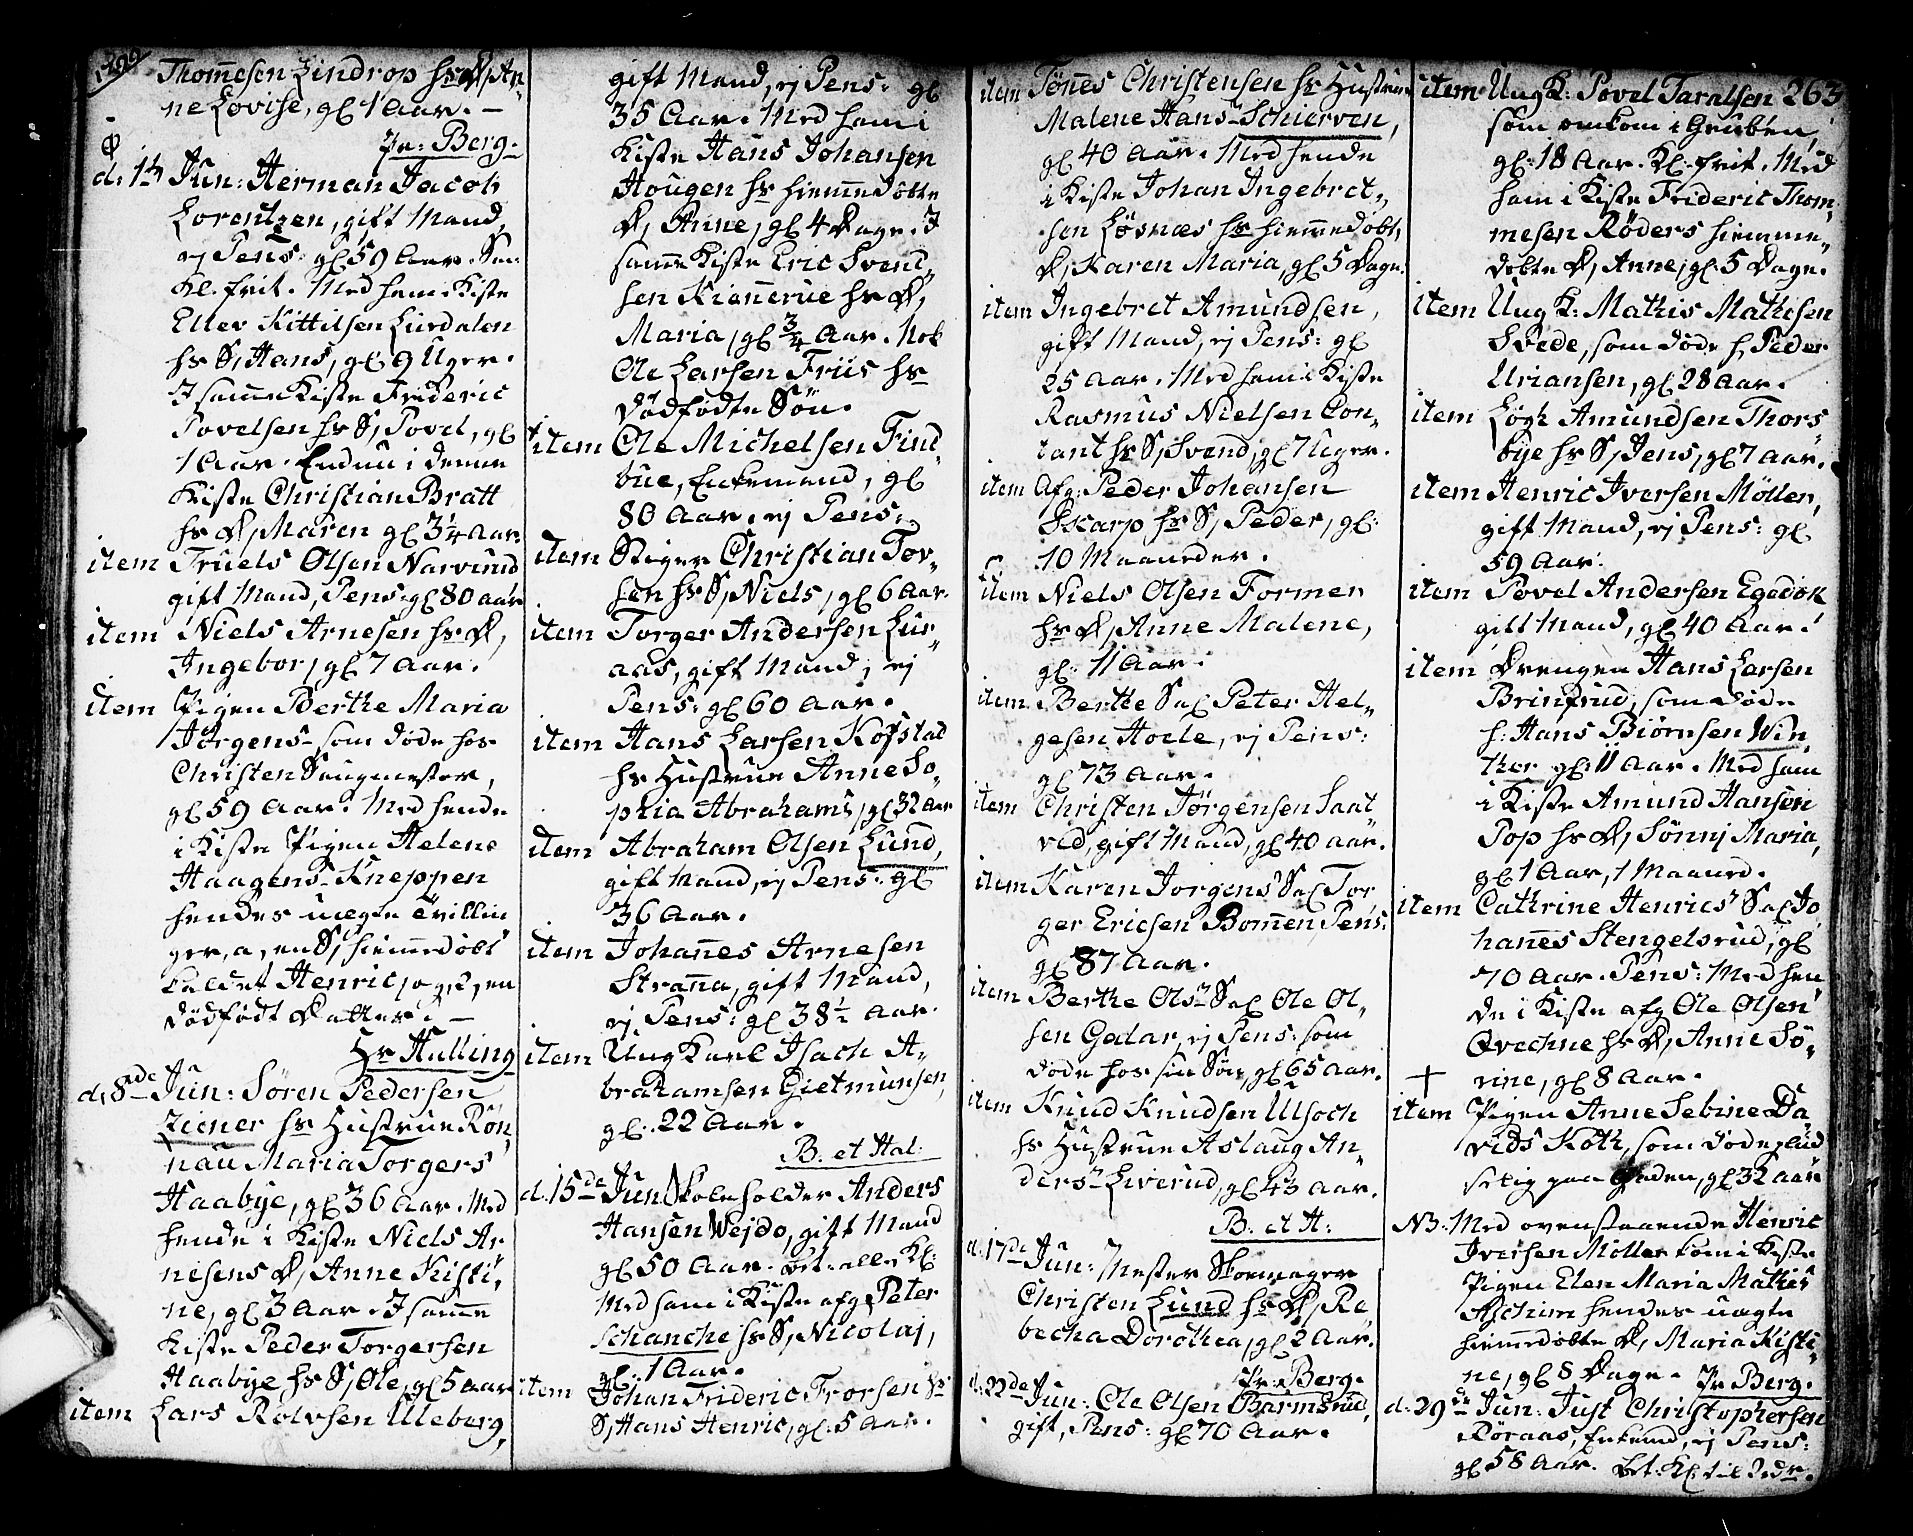 Thom̄esen Lindrop hs D, An-
ne Lovise, gl 1 Aar. —
Pr: Berg.
d: 1ste Jun: Herman Jacob
Lorentzen, gift Mand,
ej Pens: gl 59 Aar.
Kl. frit. Med ham i Kiste
Eller Kittilsen Lurdalen
hs S, Hans, gl 9 Uger.
I sam̄e Kiste Frideric
Povelsen hs S, Povel, gl
1 Aar. Endnu i denne
Kiste Christian Bratt
hs D, Maren gl 3¼ Aar.
item Truels Olsen Narverud
gift Mand, Pens: gl 80 aar
item Niels Arnesen hs D,
Ingebor, gl 7 Aar.
item Pigen Berthe Maria
Jörgens- som döde hos
Christen Saugmester,
gl 59 Aar. Med hende
i Kiste Pigen Helene
Haagens- Kneppen
hendes uægte Tvillin
ger, a, en S, hiem̄edöbt
kaldet Henric, og 2, en
dödfödt Datter. —
Hr Halling
d: 8de Jun: Sören Pedersen
Ziener hs Hustrue Rön-
nau Maria Torgers
Haabye, gl 36 Aar. Med
hende i Kiste Niels Ar
nesens D, Anne Kisti-
ne, gl 3 Aar. I sam̄e
Kiste Peder Torgersen
Haabye hs S, Ole, gl 5 aar
item Lars Rolvsen Ulleberg,
gift Mand, ej Pens: gl
35 Aar. Med ham i
Kiste Hans Johansen
Hougen hs hiem̄edöbte
D, Anne, gl 4 Dage. I
sam̄e Kiste Eric Svend-
sen Kiennerue hs D,
Maria, gl ¾ Aar. Nok
Ole Larsen Friis hs
dödfödte Sön.
item Ole Michelsen Find-
bue, Enkemand, gl
80 Aar. ej Pens:
item Stiger Christian Tor-
sen hs S, Niels, gl 6 Aar.
item Torger Andersen Lur-
aas, gift Mand, ej
Pens: gl 60 Aar.
item Hans Larsen Kofstad
hs Hustrue Anne So-
phia Abrahams, gl 32 Aar
item Abraham Olsen Lund,
gift Mand, ej Pens: gl
36 Aar.
item Johan̄es Arnesen
Stran̄a, gift Mand,
ej Pens: gl 38½ Aar.
item Ung Karl Isach A-
brahamsen Gietmunsen,
gl: 22 Aar.
B. et Hal:
d. 15de Jun. Skoleholder Anders
Hansen Wejdo, gift Mand
gl 50 Aar. bet: alle Kl:
Med ham i Kiste afg: Peter
Schanche hs S, Nicolaj,
gl: 1 Aar.
item Johan Frideric Frorsen hs
S, Hans Henric, gl: 5 Aar.
item Tön̄es Christensen hs Hustrue
Malene Hans- Schierven,
gl 40 Aar. Med hende
i Kiste Johan Ingebret-
sen Lösnæs hs hiem̄edöbt,
D, Karen Maria, gl 5 Dage.
item Ingebret Amundsen,
gift Mand, ej Pens: gl
25 Aar. Med ham i Kiste
Rasmus Nielsen Con-
tant hs S, Svend, gl 7 Uger.
item Afg: Peder Johansen
Skarp hs S, Peder, gl:
10 Maaneder.
item Niels Olsen Formen
hs D, Anne Malene,
gl: 11 Aar.
item Berthe Sal Peter Hel-
gesen Hoele, ej Pens:
gl 73 Aar.
item Christen Jörgensen Saat
ved, gift Mand, gl 40 aar.
item Karen Jorgens Sal Tor
ger Ericsen Bom̄en, Pens:
gl 87 Aar.
item Berthe Ols Sal Ole Ol-
sen Godar, ej Pens: som
döde hos sin Sön, gl 65 Aar.
item Knud Knudsen Ulsoch
hs Hustrue Aslaug An-
ders Liverud, gl 43 Aar.
B. et H:
d: 17de Jun: Mester Skoemager
Christen Lund hs D, Re
becha Dorothea, gl 2 Aar.
Pr. Berg.
d: 22de Jun: Ole Olsen Barmsrud,
gift, Pens: gl 70 Aar.
item Ung K: Povel Taralsen 263
som omkom i Gruben,
gl: 18 Aar. Kl: frit. Med
ham i Kiste Frideric Thom-
mesen Röders hiemme-
döbte D, Anne, gl 5 Dage.
item Ung K: Mathis Mathesen
Svede, som döde h, Peder
Uriansen, gl 28 Aar.
item Amundsen Thors-
bye hs S, Jens, gl 7 aar.
item Henric Iversen Möller,
gift Mand, ej Pens: gl
59 Aar.
item Povel Andersen Egedok
gift Mand, gl 40 Aar.
item Drengen Hans Larsen
Brinfrud, som döde
h: Hans Biörnsen Win-
ther gl: 11 Aar. Med ham
i Kiste Amund Hansen
Pop hs D, Sönnj Maria,
gl 1 Aar, 1 Maaned.
item Cathrine Henrics Sal Jo
han̄es Stengelsrud, gl
70 Aar. Pens: Med hen
de i Kiste afg Ole Olsen
Qvechne hs D, Anne Sö-
rine, gl 8 Aar.
+
item Pigen Anne Sebine Da
vids Koth, som döde plud
selig paa Gaden, gl 32 aar
NB: Med ovenstaaende Henric
Iversen Möller kom i Kiste
Pigen Elen Maria Mathis
Aschim hendes uægte
hiem̄edöbte D, Maria Kisti-
ne, gl 8 Dage. Pr Berg.
d: 29de Jun: Just Christophersen
Röraas, Enkemd, ej Pens:
gl 58 Aar. bet: Kl: